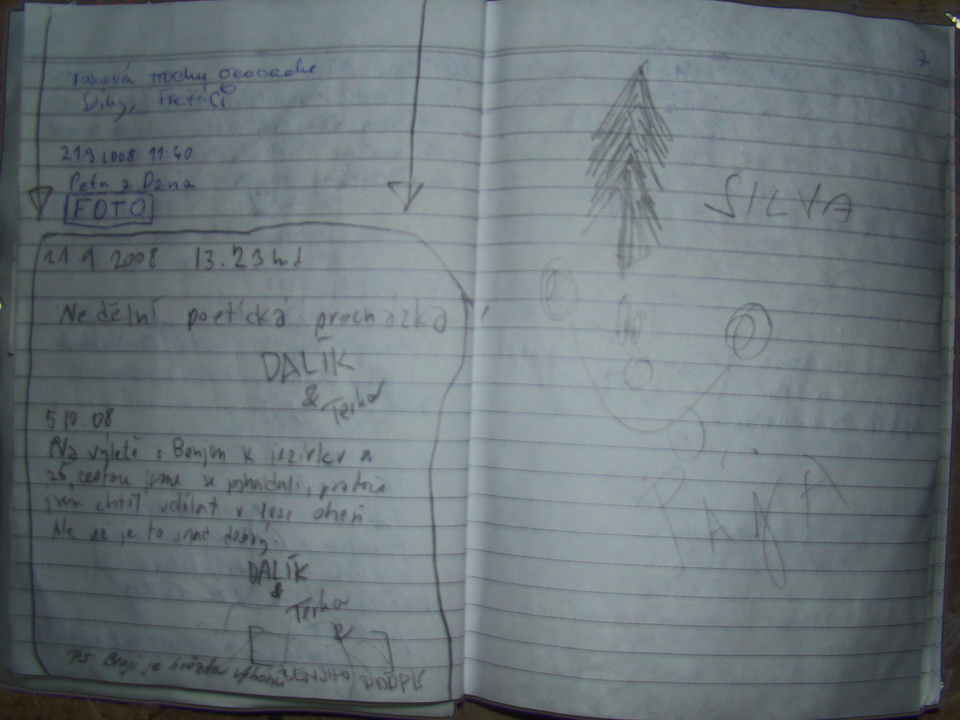 Taková trochu geocache
21 9 2008 11:40
Petr a Dana
FOTO
21 9 2008 13.23
Nedělní poetická procházka
DALÍK
& Terka
5 10 08
Na výletě s Benjim k jezírku a
cestou jsme se pohádali, protože
jsem chtěl udělat v lese oheň.
Ale už je to snad dobrý.
DALÍK
&
Terka
&
PS Benji je hvězda
7
SILVA